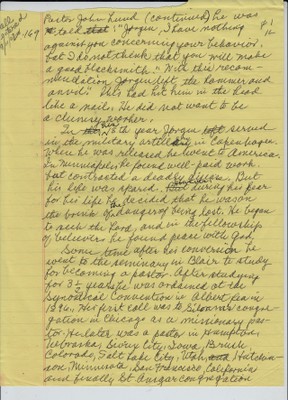 Pastor John Lund (continued) he was
told that "Jorgen, I have nothing
against you concerning your behavior,
but I do not think that you will make
a good blacksmith." With this recom-
mendation Jorgen left the hammer and
anvil. This had hit him in the head
like a nail. He did not want to be
a clumsy worker.
In his th year Jorgen served
in the military artillery in Copenhagen.
When he was released he went to America.
In Minneapolis he found well-paid work
but contracted a deadly disease. But
his life was spared. And during his fear
for his life he decided that he was on
the brink of danger of being lost. He began
to seek the Lord, and in the fellowship
of believers he found peace with God.
Some time after his conversion he
went to the seminary in Blair to study
for becoming a pastor. After studying
for 3½ years he was ordained at the
Synodical Convention in Albert Lea in
1896. His first call was to Siloam's congre-
gation in Chicago as a missionary pas-
tor. He later was a pastor in Hampton,
Nebraska, Sioux City, Iowa, Brush,
Colorado, Salt Lake City, Utah, and Hutchin-
son, Minnesota, San Francisco, California
and finally St Ansgar congregation